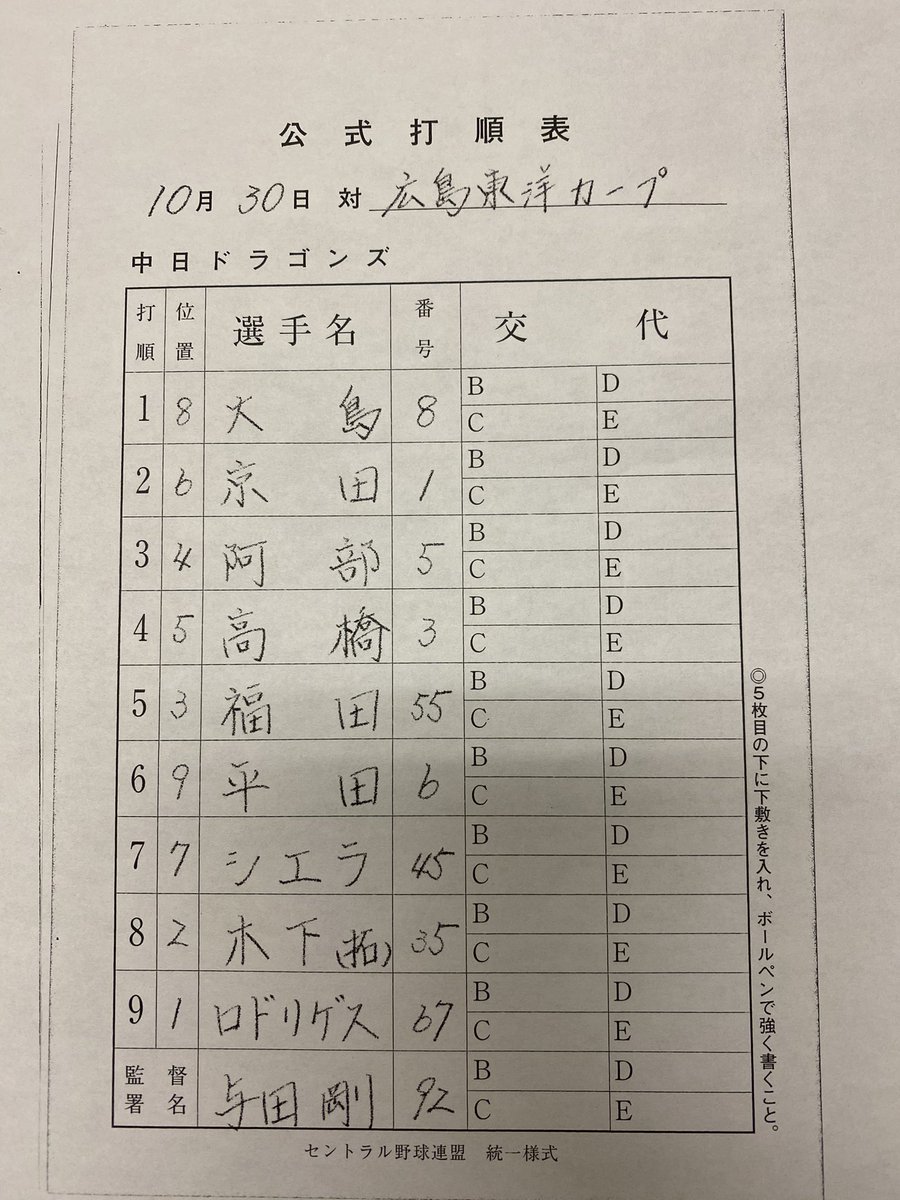 公式打順表
10月30日 対 広島東洋カープ
中日ドラゴンズ
打順 位置 選手名 番号 交代
1 8 大島 8 B D C E
2 6 京田 1 B D C E
3 4 阿部 5 B D C E
4 5 高橋 3 B D C E
5 3 福田 55 B D C E
6 9 平田 6 B D C E
7 7 シエラ 45 B D C E
8 2 木下(拓) 35 B D C E
9 1 ロドリゲス 67 B D C E
監督署名 与田剛 92 B D C E
◎5枚目の下に下敷きを入れ、ボールペンで強く書くこと。
セントラル野球連盟 統一様式